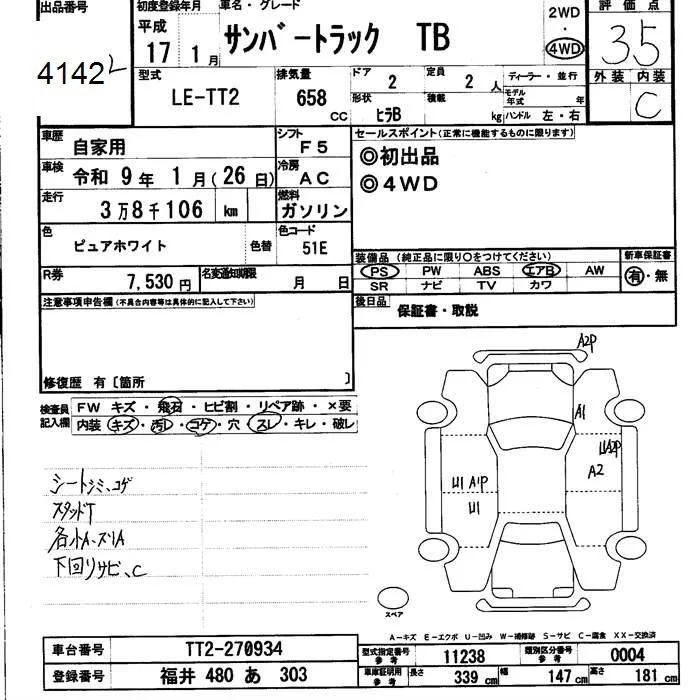 出品番号
41422
初度登録年月
平成
17年 1月
車名・グレード
サンバートラック TB
2WD
・
4WD
評価点
3.5
外装 内装
C
型式
LE-TT2
排気量
658 CC
ドア
2
形状
ヒラB
定員
2 人
積載
kg
ディーラー・並行
モデル年式 年
ハンドル 左・右
車歴
自家用
シフト
F5
車検
令和 9年 1月(26日)
冷房
AC
走行
3万8千106 km
燃料
ガソリン
色
ピュアホワイト
色替
色コード
51E
R券
7,530円
名変通知期限
月 日
セールスポイント(正常に機能するものに限ります)
◎初出品
◎4WD
装備品 (純正品に限り○をつけてください)
PS PW ABS エアB AW
SR ナビ TV カワ
新車保証書
有・無
後日品
保証書・取説
注意事項申告欄 (不具合内容等は具体的に記入して下さい)
修復歴 有〔箇所 〕
検査員記入欄
FW キズ・飛石・ヒビ割・リペア跡・×要
内装 キズ・汚レ・コゲ・穴・スレ・キレ・破レ
シートシミ、コゲ
スタッドT
各小A・スリA
下回りサビ、C
A2P
A1
U1A2P
A2
U1 A1P
U1
スペア
A-キズ E-エクボ U-凹み W-補修跡 S-サビ C-腐食 XX-交換済
車台番号
TT2-270934
型式指定番号
参考
11238
類別区分番号
参考
0004
登録番号
福井 480 あ 303
車庫証明用
参考
長さ 339 cm
幅 147 cm
高さ 181 cm